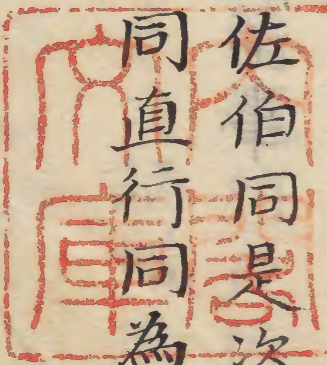 佐伯同是次
同直行同為